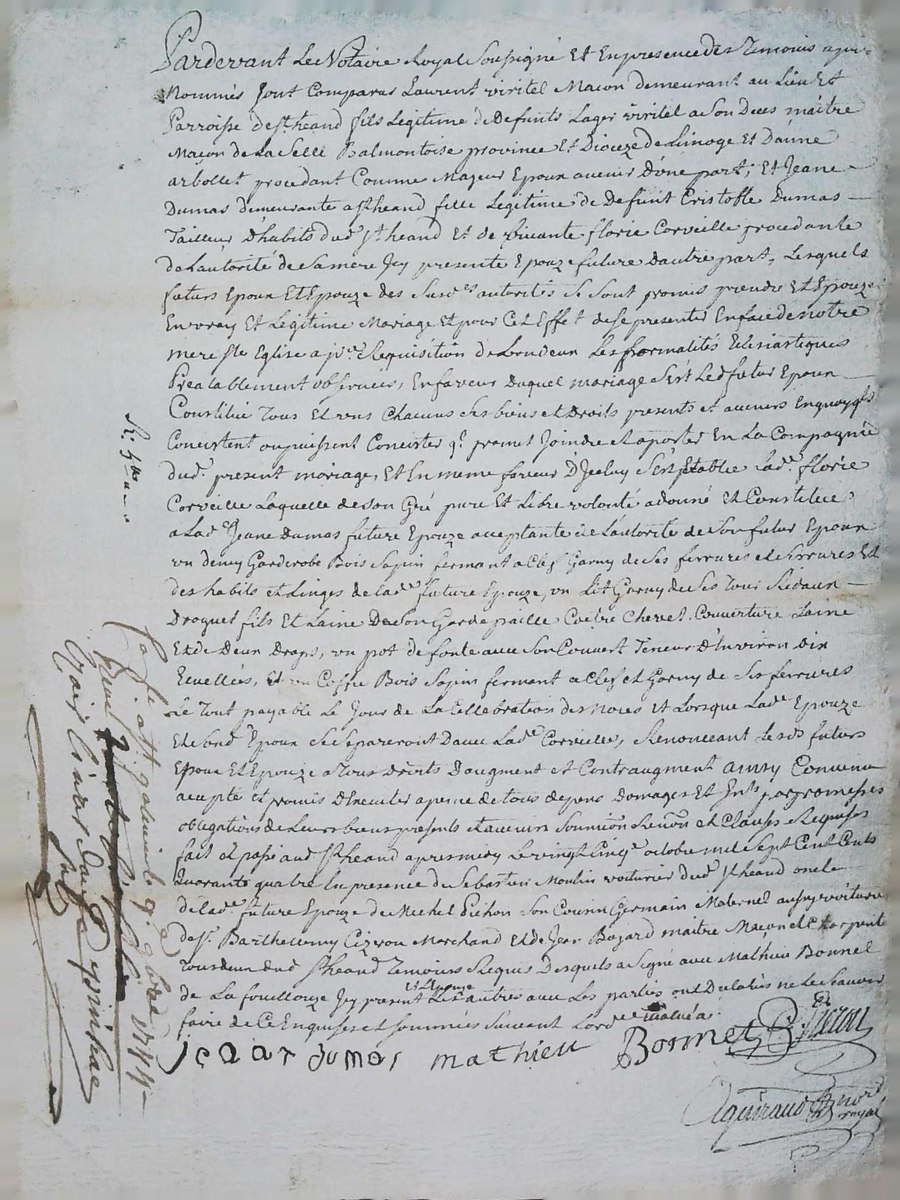 Pardevant Le Notaire Royal Soussigné Et En presence des Temoins apres
Nommés sont Comparus Laurent viritel Maçon demeurant au Lieu Et
Parroisse de st heand fils Legitime de Defunts Lager viritel a Son Deces maitre
Maçon de La Selle Balmontoise province Et Dioceze de Limoge et Danne
arbollet procedant Comme Majeur Epoux avenir d'une part; Et Jeane
Dumas demeurante a st heand fille Legitime de Defunt Cristofle Dumas
Tailleur D'habits dud. st heand Et de vivante florie Corveille procedante
de L'autorité de Sa mere Icy presente Epouze future dautre part, Lesquels
futurs Epoux Et Epouze des Susd.es autorités Se Sont promis prendre Et Epouzer
En vray Et Legitime Mariage Et pour Cet Effet de Se presenter En face de notre
mere ste Eglise a Requisition de L'un deux Les formalités Eclesiastiques
Prealablement observées, En faveur Duquel mariage S'est Led. futur Epoux
Constitué Tous Et uns Chacuns Ses biens et Droits presents et avenirs En quoy qls
Concistent ou puissent Concister ql. promet Joindre et aporter En La Compagnie
dud. present mariage, Et En meme faveur D'Iceluy S'est Etablie Lad. florie
Corveille Laquelle de Son Gré pure Et Libre volonté a donné Et Constitué
a Lad.e Jeane Dumas future Epouze acceptante de L'autorité de Son futur Epoux
un demy Garderobe Bois Sapin fermant a Clef Garny de Ses ferrures et Serrures Et
des habits et Linges de Lad.e future Epouze, un Lit Garny de Ses Tour Rideaux
Droguet fils Et Laine De Son Garde paille Coitre Chevet Couverture Laine
Et de Deux Draps, un pot de fonte avec Son Couvert Teneur D'Environ Dix
Ecuellées, Et un Coffre Bois Sapin fermant a Clef et Garny de Ses ferrures
Le Tout payable Le Jour de La Cellebration des Noces et Lorsque Lad.e Epouze
Et Sond. Epoux Se Separeront Davec Lad.e Corveille, Renonceant Lesds futurs
Epoux Et Epouze a Tous Droits Daugment et Contraugment ainsy Convenu
accepté et promis D'Executer a peine de tous depens Domages Et Intts par promesses
obligations de Leurs biens presents et avenirs Soumiōn Renoōn et Clauses Requises
fait et passé aud. st heand apres midy Le vingt Cinqe octobre mil Sept Cent Cents
Quarante quatre En presence de Sebastien Moulin voiturier dud. st heand oncle
de Lad.e future Epouze de Michel Pichon Son Cousin Germain Maternel aussy voiturier
de Sr. Barthellemy Marchand Et de Jean Bogard maitre Maçon et Charpentier
Tous deux dud. st heand Temoins Requis Desquels a Signé avec Mathieu Bonnel
de La fouillouze Icy present Et L'Epouze Les autres avec Les parties ont Declarés ne Le Scavoir
faire de Ce Enquises et Sommées Suivant Lord.ce
Jeane dumas mathieu Bonnel
Aguiraud nore royal
a st galmier le 9. 9bre 1744